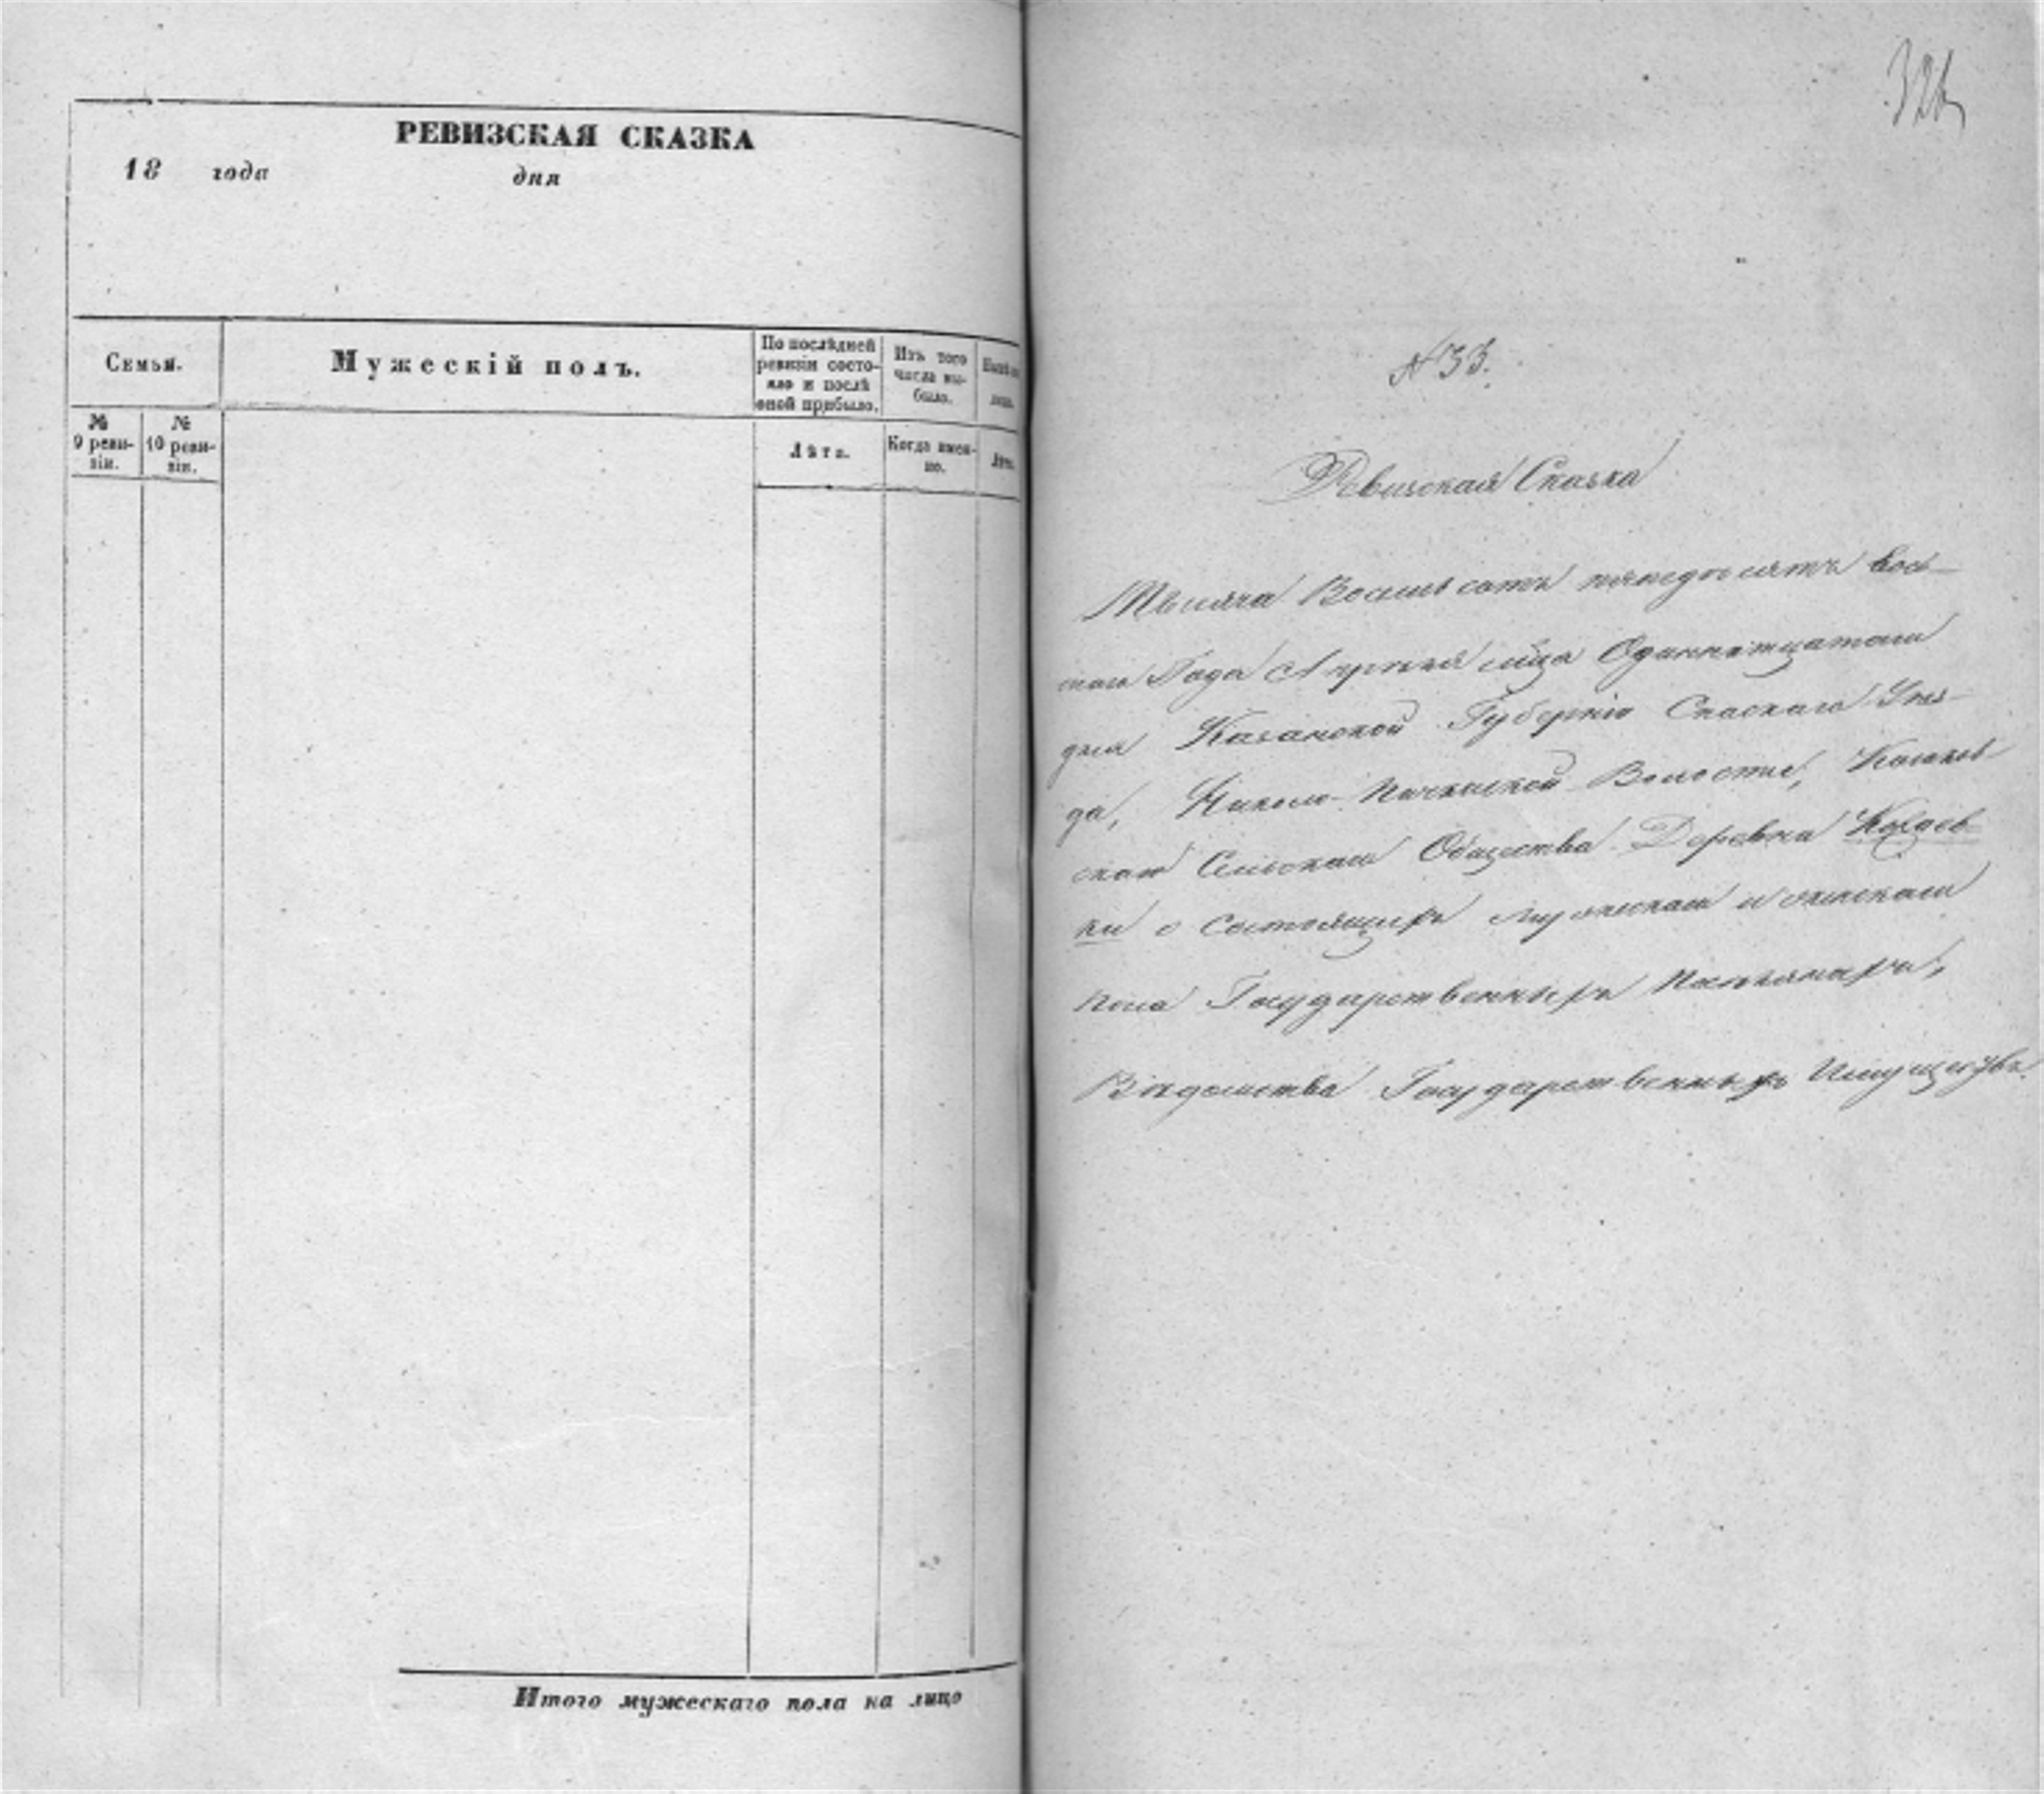 РЕВИЗСКАЯ СКАЗКА
18 года дня
Семьи.
Мужескій полъ.
По послѣдней ревизіи состояло и послѣ оной прибыло.
Изъ того числа выбыло.
№ 9 ревизіи.
№ 10 ревизіи.
Лѣта.
Когда именно.
Лѣта.
Итого мужескаго пола на лицо
326
№ 33.
Ревизская Сказка
Тысяча Восемьсотъ пятдесятъ вось-
маго Года Апрѣля мѣца Одиннатцатаго
дня Казанской Губерніи Спаскаго Уѣз-
да, Волости,
скаго Сельскаго Общества Деревни
ки о состоящихъ мужескаго и женскаго
пола Государственныхъ Поселянахъ,
Вѣдомства Государственныхъ Имуществъ.